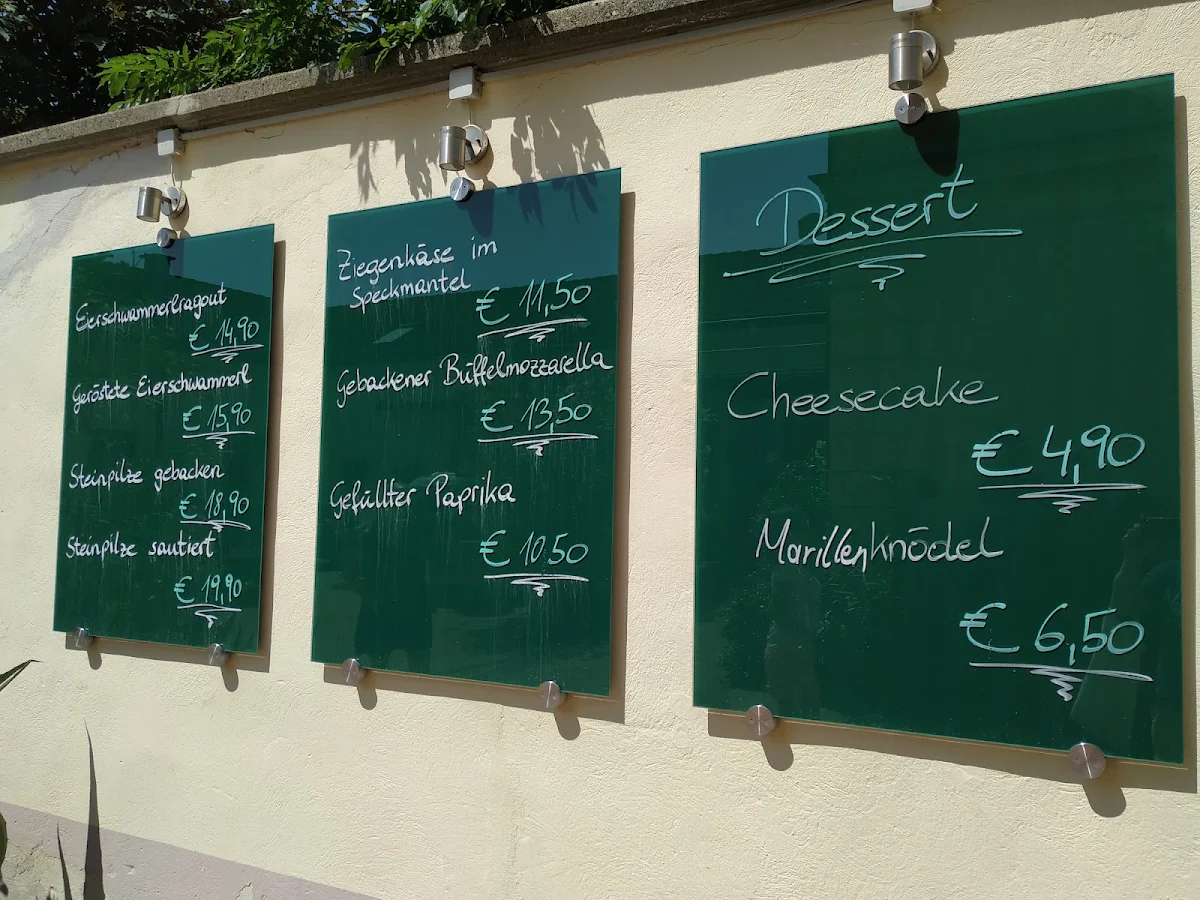 Eierschwammerlragout
€ 14,90
Geröstete Eierschwammerl
€ 15,90
Steinpilze gebacken
€ 18,90
Steinpilze sautiert
€ 19,90
Ziegenkäse im
Speckmantel
€ 11,50
Gebackener Büffelmozzarella
€ 13,50
Gefüllter Paprika
€ 10.50
Dessert
Cheesecake
€ 4,90
Marillenknödel
€ 6,50